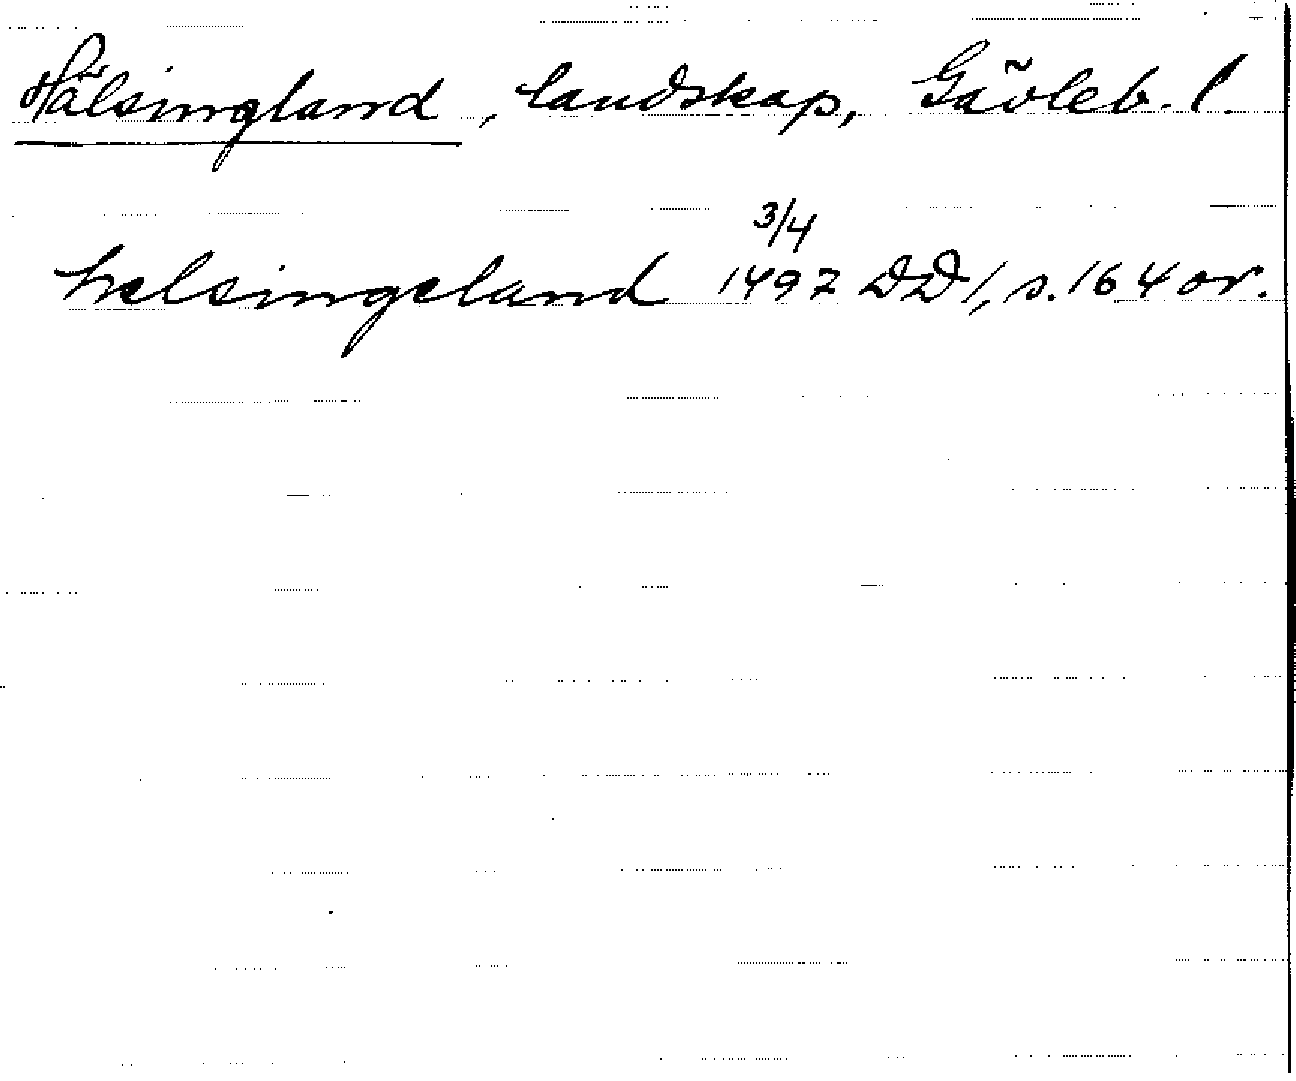 Hälsingland, landskap, Gävleb. l.
3/4
helsingeland 1497 DD 1, s. 164 or.